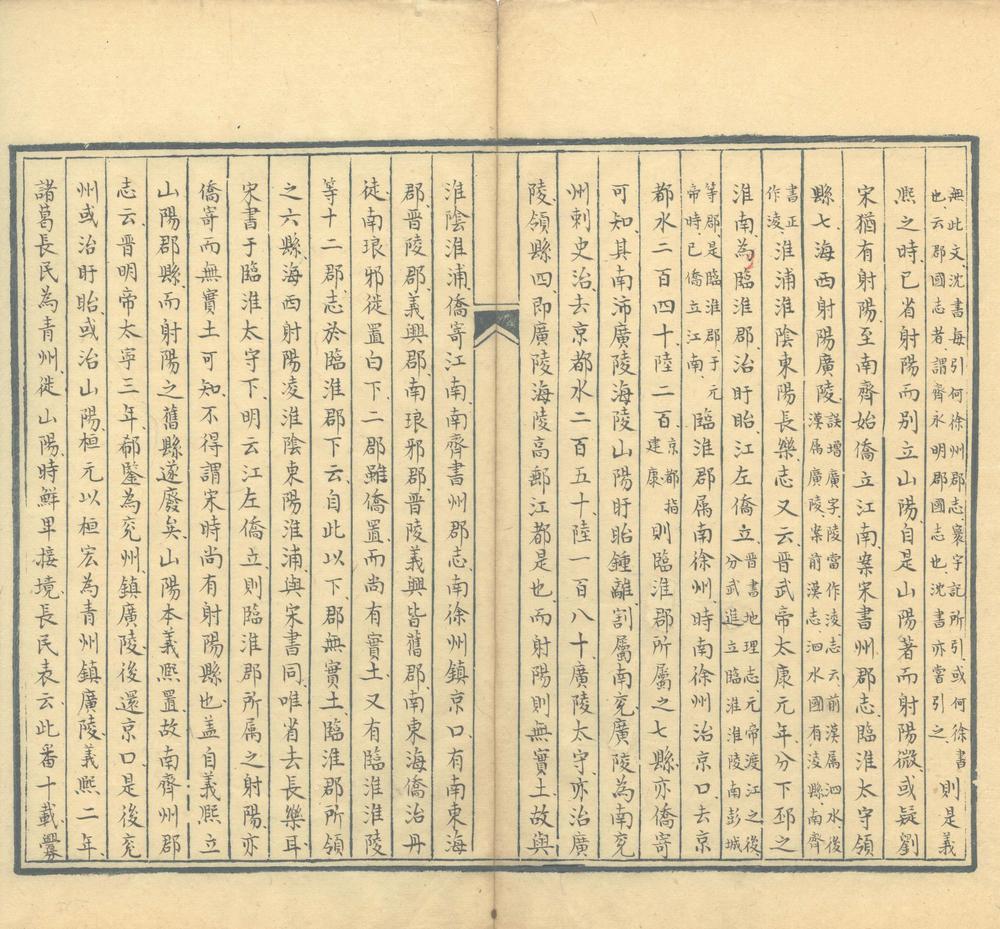 無此文沈書每引何徐州郡志寰宇記所引或何徐書
也云郡國志者謂齊永明郡國志也沈書亦嘗引之則是義
熙之時已省射陽而别立山陽自是山陽著而射陽微或疑劉
宋猶有射陽至南齊始僑立江南案宋書州郡志臨淮太守領
縣七海西射陽廣陵誤增廣字陵當作淩志云前漢屬泗水後
漢屬廣陵案前漢志泗水國有淩縣南齊
書正
作淩淮浦淮陰東陽長樂志又云晉武帝太康元年分下邳之
淮南為臨淮郡治盱眙江左僑立晉書地理志元帝渡江之後
分武進立臨淮淮陵南彭城
等郡是臨淮郡于元
帝時已僑立江南臨淮郡属南徐州時南徐州治京口去京
都水二百四十陸二百京都指
建康則臨淮郡所屬之七縣亦僑寄
可知其南沛廣陵海陵山陽盱眙鍾離割屬南兖廣陵為南兖
州刺史治去京都水二百五十陸一百八十廣陵太守亦治廣
陵領縣四即廣陵海陵高郵江都是也而射陽則無實土故與
淮陰淮浦僑寄江南南齊書州郡志南徐州鎮京口有南東海
郡晉陵郡義興郡南琅邪郡晉陵義興皆舊郡南東海僑治丹
徒南琅邪徙置白下二郡雖僑置而尚有實土又有臨淮淮陵
等十二郡志於臨淮郡下云自此以下郡無實土臨淮郡所領
之六縣海西射陽淩淮陰東陽淮浦與宋書同唯省去長樂耳
宋書于臨淮太守下明云江左僑立則臨淮郡所属之射陽亦
僑寄而無實土可知不得謂宋時尚有射陽縣也盖自義熙立
山陽郡縣而射陽之舊縣遂廢矣山陽本義熙置故南齊州郡
志云晉明帝太寧三年郗鑒為兖州鎮廣陵後還京口是後兖
州或治盱眙或治山陽桓元以桓宏為青州鎮廣陵義熙二年
諸葛長民為青州徙山陽時鮮卑接境長民表云此番十載釁